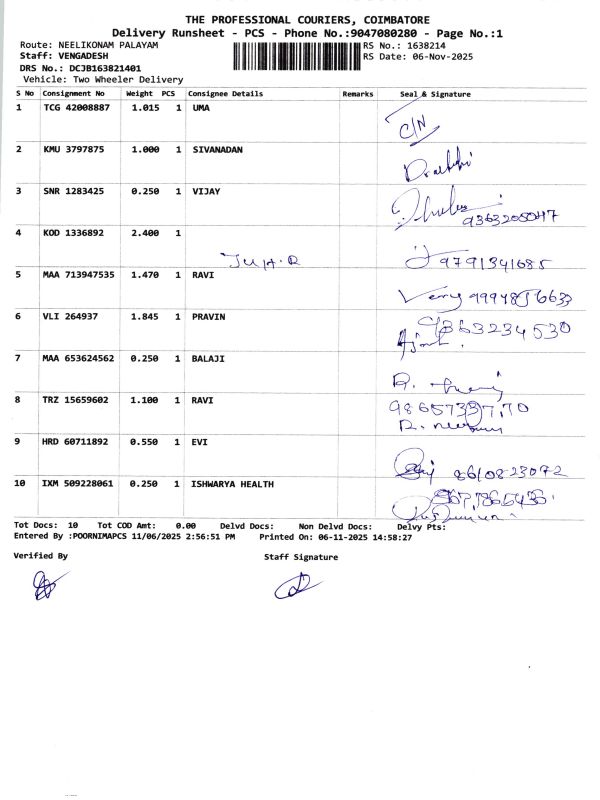 THE PROFESSIONAL COURIERS, COIMBATORE
Delivery Runsheet - PCS - Phone No.:9047080280 - Page No.:1
Route: NEELIKONAM PALAYAM
RS No.: 1638214
Staff: VENGADESH
RS Date: 06-Nov-2025
DRS No.: DCJB163821401
Vehicle: Two Wheeler Delivery
S No Consignment No Weight PCS Consignee Details Remarks Seal & Signature
1 TCG 42008887 1.015 1 UMA
C/N
2 KMU 3797875 1.000 1 SIVANADAN
3 SNR 1283425 0.250 1 VIJAY
9363208047
4 KOD 1336892 2.400 1
9791341685
5 MAA 713947535 1.470 1 RAVI
6 VLI 264937 1.845 1 PRAVIN
9363234530
7 MAA 653624562 0.250 1 BALAJI
8 TRZ 15659602 1.100 1 RAVI
9 HRD 60711892 0.550 1 EVI
8610823072
10 IXM 509228061 0.250 1 ISHWARYA HEALTH
Tot Docs: 10 Tot COD Amt: 0.00 Delvd Docs: Non Delvd Docs: Delvy Pts:
Entered By :POORNIMAPCS 11/06/2025 2:56:51 PM Printed On: 06-11-2025 14:58:27
Verified By Staff Signature